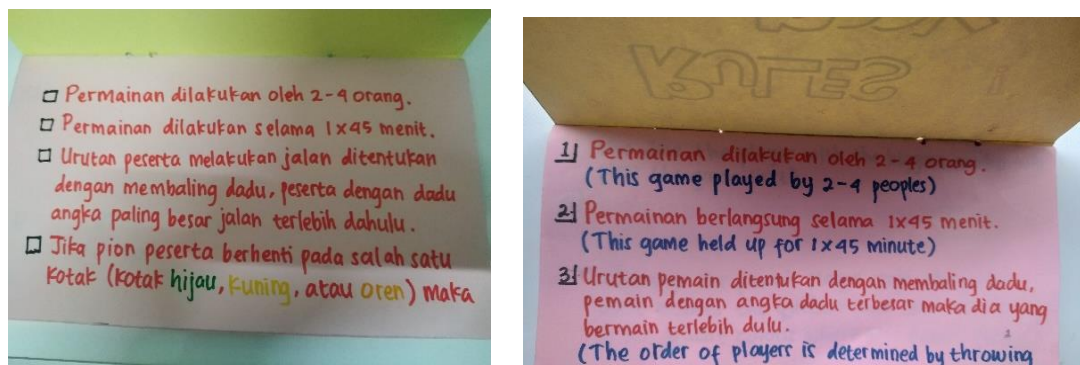 Permainan dilakukan oleh 2-4 orang.
Permainan dilakukan selama 1x45 menit.
Urutan peserta melakukan jalan ditentukan
dengan membaling dadu, peserta dengan dadu
angka paling besar jalan terlebih dahulu.
Jika pion peserta berhenti pada salah satu
kotak (kotak hijau, kuning, atau oren) maka
RULES
1) Permainan dilakukan oleh 2-4 orang.
(This game played by 2-4 peoples)
2) Permainan berlangsung selama 1x45 menit.
(This game held up for 1x45 minute)
3) Urutan pemain ditentukan dengan membaling dadu,
pemain dengan angka dadu terbesar maka dia yang
bermain terlebih dulu.
1
(The order of players is determined by throwing